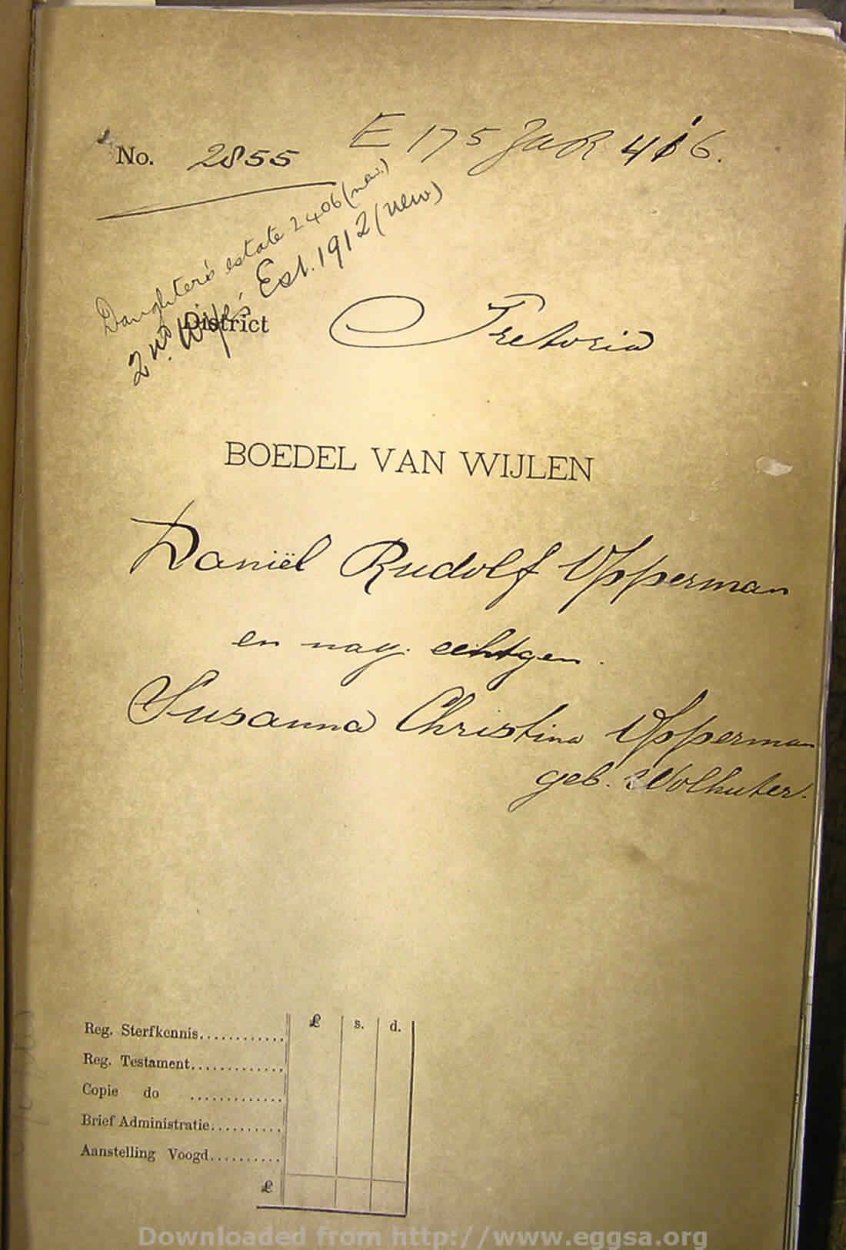 No. 2855
E 175 Jaar 416.
Daughter's estate 2406 (new)
2nd. Wife's Est. 1912 (new)
District Pretoria
BOEDEL VAN WIJLEN
Daniël Rudolf Opperman
en nag. echtgen.
Susanna Christina Opperman
geb. Wolhuter.
£ s. d.
Reg. Sterfkennis............
Reg. Testament.............
Copie do .............
Brief Administratie..........
Aanstelling Voogd..........
£
Downloaded from http://www.eggsa.org